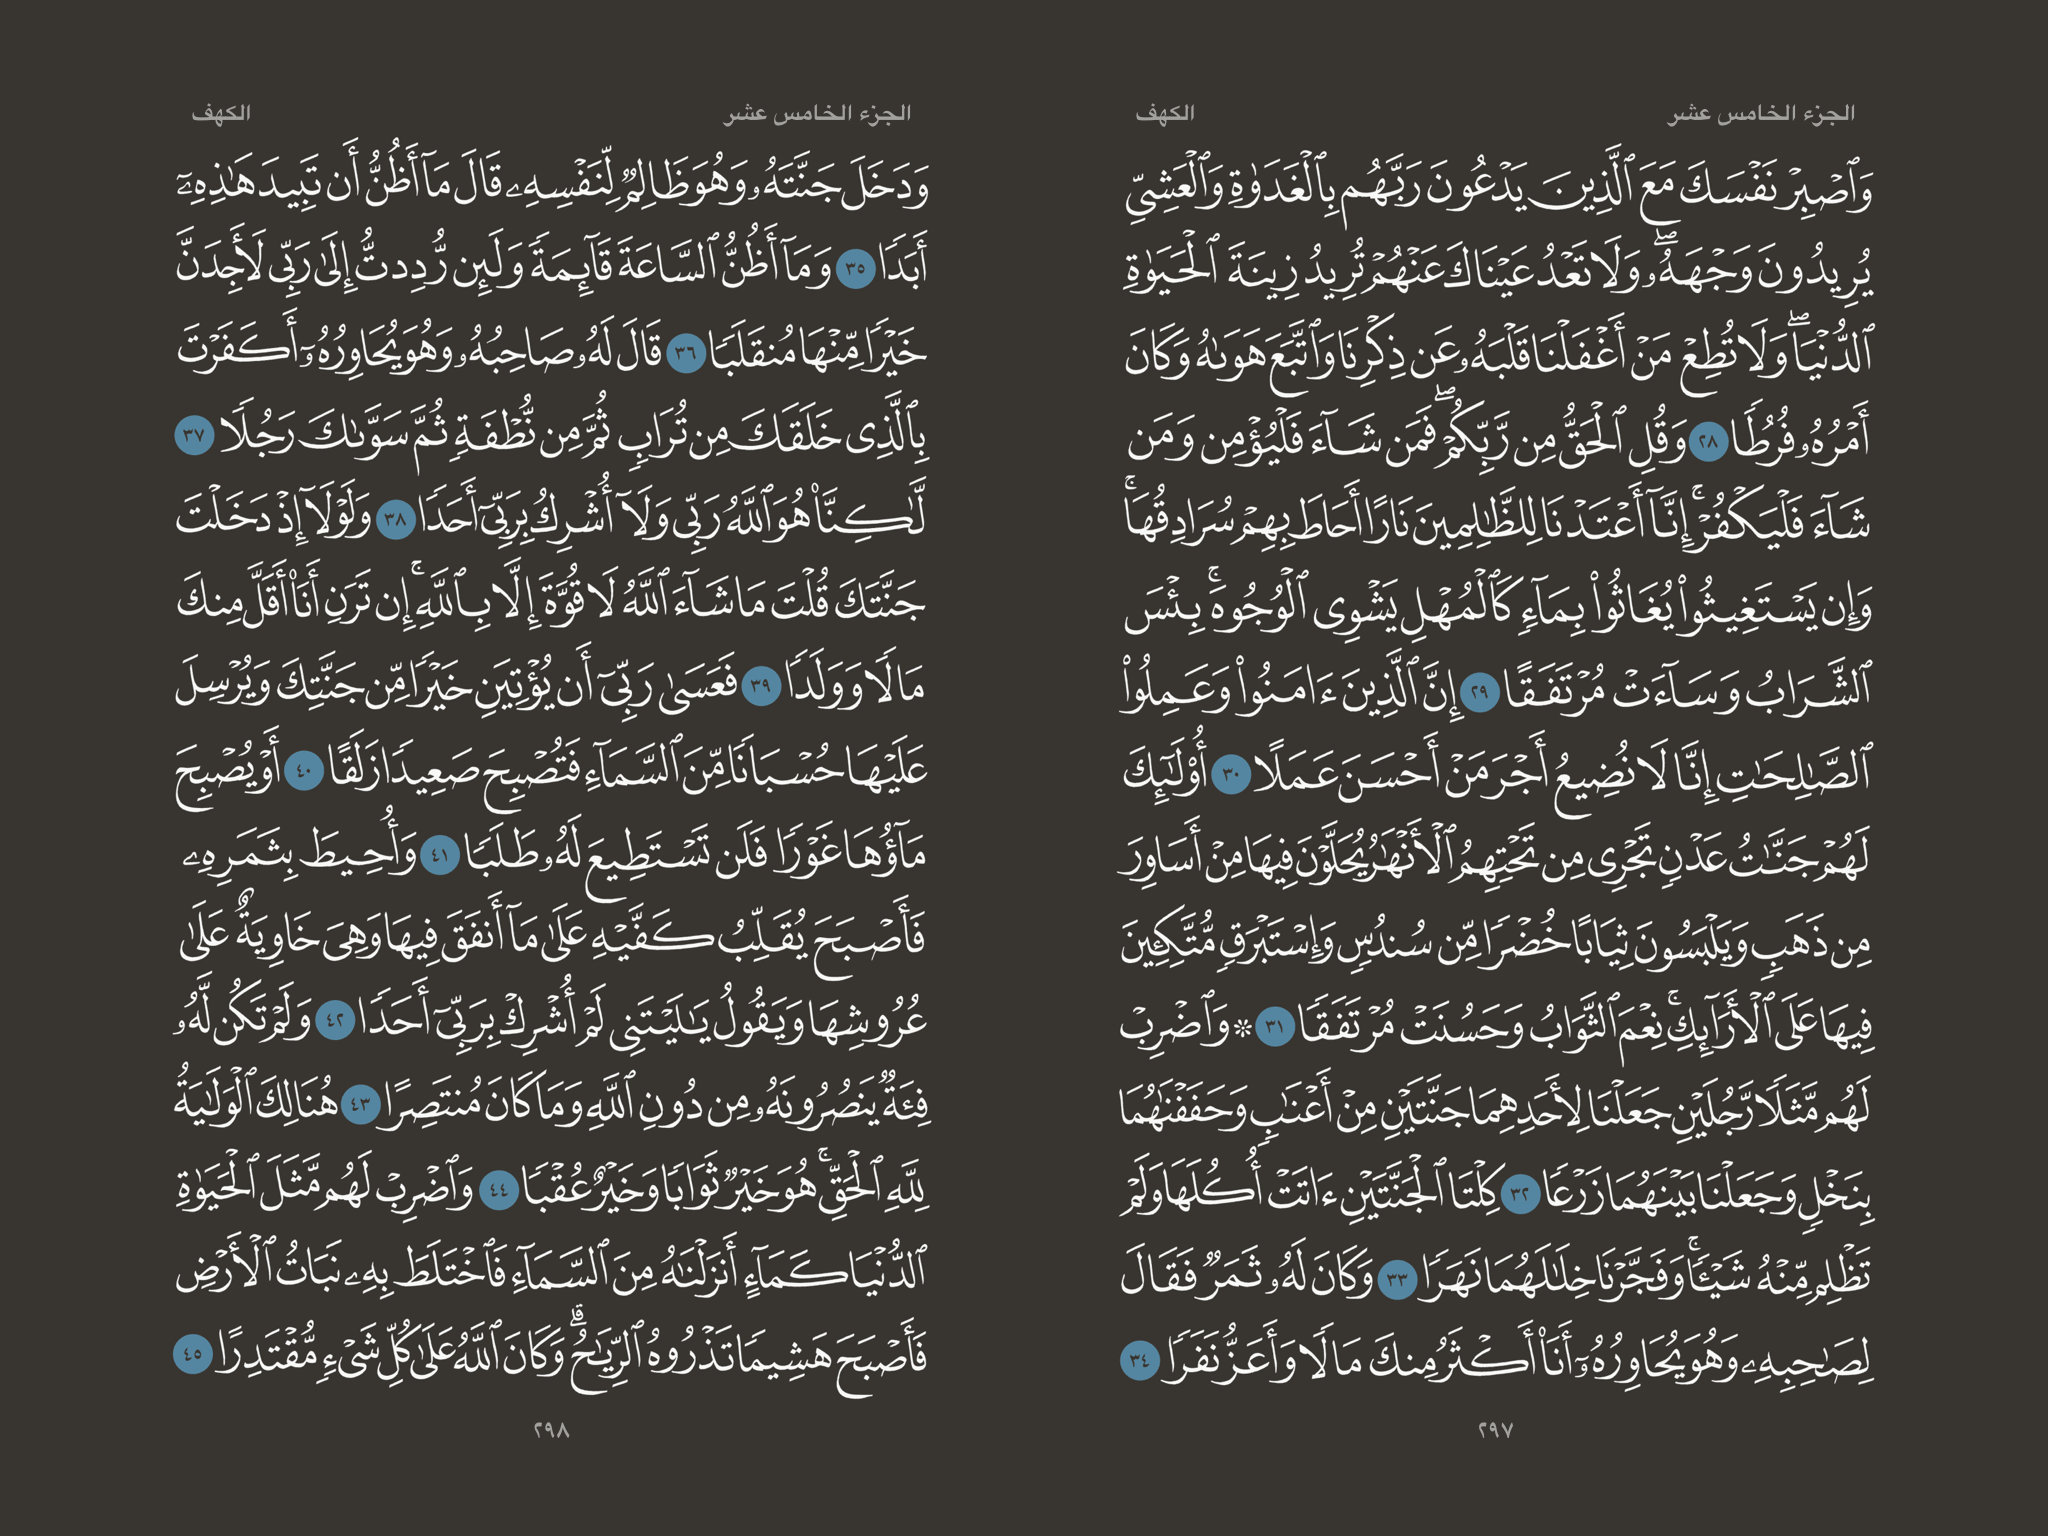 الجزء الخامس عشر
الكهف
وَٱصۡبِرۡ نَفۡسَكَ مَعَ ٱلَّذِينَ يَدۡعُونَ رَبَّهُم بِٱلۡغَدَوٰةِ وَٱلۡعَشِيِّ
يُرِيدُونَ وَجۡهَهُۥۖ وَلَا تَعۡدُ عَيۡنَاكَ عَنۡهُمۡ تُرِيدُ زِينَةَ ٱلۡحَيَوٰةِ
ٱلدُّنۡيَاۖ وَلَا تُطِعۡ مَنۡ أَغۡفَلۡنَا قَلۡبَهُۥ عَن ذِكۡرِنَا وَٱتَّبَعَ هَوَىٰهُ وَكَانَ
أَمۡرُهُۥ فُرُطٗا ٢٨ وَقُلِ ٱلۡحَقُّ مِن رَّبِّكُمۡۖ فَمَن شَآءَ فَلۡيُؤۡمِن وَمَن
شَآءَ فَلۡيَكۡفُرۡۚ إِنَّآ أَعۡتَدۡنَا لِلظَّٰلِمِينَ نَارًا أَحَاطَ بِهِمۡ سُرَادِقُهَاۚ
وَإِن يَسۡتَغِيثُواْ يُغَاثُواْ بِمَآءٖ كَٱلۡمُهۡلِ يَشۡوِي ٱلۡوُجُوهَۚ بِئۡسَ
ٱلشَّرَابُ وَسَآءَتۡ مُرۡتَفَقًا ٢٩ إِنَّ ٱلَّذِينَ ءَامَنُواْ وَعَمِلُواْ
ٱلصَّٰلِحَٰتِ إِنَّا لَا نُضِيعُ أَجۡرَ مَنۡ أَحۡسَنَ عَمَلًا ٣٠ أُوْلَٰٓئِكَ
لَهُمۡ جَنَّٰتُ عَدۡنٖ تَجۡرِي مِن تَحۡتِهِمُ ٱلۡأَنۡهَٰرُ يُحَلَّوۡنَ فِيهَا مِنۡ أَسَاوِرَ
مِن ذَهَبٖ وَيَلۡبَسُونَ ثِيَابًا خُضۡرٗا مِّن سُندُسٖ وَإِسۡتَبۡرَقٖ مُّتَّكِـِٔينَ
فِيهَا عَلَى ٱلۡأَرَآئِكِۚ نِعۡمَ ٱلثَّوَابُ وَحَسُنَتۡ مُرۡتَفَقٗا ٣١ ۞ وَٱضۡرِبۡ
لَهُم مَّثَلٗا رَّجُلَيۡنِ جَعَلۡنَا لِأَحَدِهِمَا جَنَّتَيۡنِ مِنۡ أَعۡنَٰبٖ وَحَفَفۡنَٰهُمَا
بِنَخۡلٖ وَجَعَلۡنَا بَيۡنَهُمَا زَرۡعٗا ٣٢ كِلۡتَا ٱلۡجَنَّتَيۡنِ ءَاتَتۡ أُكُلَهَا وَلَمۡ
تَظۡلِم مِّنۡهُ شَيۡـٔٗاۚ وَفَجَّرۡنَا خِلَٰلَهُمَا نَهَرٗا ٣٣ وَكَانَ لَهُۥ ثَمَرٞ فَقَالَ
لِصَٰحِبِهِۦ وَهُوَ يُحَاوِرُهُۥٓ أَنَا۠ أَكۡثَرُ مِنكَ مَالٗا وَأَعَزُّ نَفَرٗا ٣٤
٢٩٧
الجزء الخامس عشر
الكهف
وَدَخَلَ جَنَّتَهُۥ وَهُوَ ظَالِمٞ لِّنَفۡسِهِۦ قَالَ مَآ أَظُنُّ أَن تَبِيدَ هَٰذِهِۦٓ
أَبَدٗا ٣٥ وَمَآ أَظُنُّ ٱلسَّاعَةَ قَآئِمَةٗ وَلَئِن رُّدِدتُّ إِلَىٰ رَبِّي لَأَجِدَنَّ
خَيۡرٗا مِّنۡهَا مُنقَلَبٗا ٣٦ قَالَ لَهُۥ صَاحِبُهُۥ وَهُوَ يُحَاوِرُهُۥٓ أَكَفَرۡتَ
بِٱلَّذِي خَلَقَكَ مِن تُرَابٖ ثُمَّ مِن نُّطۡفَةٖ ثُمَّ سَوَّىٰكَ رَجُلٗا ٣٧
لَّٰكِنَّا۠ هُوَ ٱللَّهُ رَبِّي وَلَآ أُشۡرِكُ بِرَبِّيٓ أَحَدٗا ٣٨ وَلَوۡلَآ إِذۡ دَخَلۡتَ
جَنَّتَكَ قُلۡتَ مَا شَآءَ ٱللَّهُ لَا قُوَّةَ إِلَّا بِٱللَّهِۚ إِن تَرَنِ أَنَا۠ أَقَلَّ مِنكَ
مَالٗا وَوَلَدٗا ٣٩ فَعَسَىٰ رَبِّيٓ أَن يُؤۡتِيَنِ خَيۡرٗا مِّن جَنَّتِكَ وَيُرۡسِلَ
عَلَيۡهَا حُسۡبَانٗا مِّنَ ٱلسَّمَآءِ فَتُصۡبِحَ صَعِيدٗا زَلَقًا ٤٠ أَوۡ يُصۡبِحَ
مَآؤُهَا غَوۡرٗا فَلَن تَسۡتَطِيعَ لَهُۥ طَلَبٗا ٤١ وَأُحِيطَ بِثَمَرِهِۦ
فَأَصۡبَحَ يُقَلِّبُ كَفَّيۡهِ عَلَىٰ مَآ أَنفَقَ فِيهَا وَهِيَ خَاوِيَةٌ عَلَىٰ
عُرُوشِهَا وَيَقُولُ يَٰلَيۡتَنِي لَمۡ أُشۡرِكۡ بِرَبِّيٓ أَحَدٗا ٤٢ وَلَمۡ تَكُن لَّهُۥ
فِئَةٞ يَنصُرُونَهُۥ مِن دُونِ ٱللَّهِ وَمَا كَانَ مُنتَصِرًا ٤٣ هُنَالِكَ ٱلۡوَلَٰيَةُ
لِلَّهِ ٱلۡحَقِّۚ هُوَ خَيۡرٞ ثَوَابٗا وَخَيۡرٌ عُقۡبٗا ٤٤ وَٱضۡرِبۡ لَهُم مَّثَلَ ٱلۡحَيَوٰةِ
ٱلدُّنۡيَا كَمَآءٍ أَنزَلۡنَٰهُ مِنَ ٱلسَّمَآءِ فَٱخۡتَلَطَ بِهِۦ نَبَاتُ ٱلۡأَرۡضِ
فَأَصۡبَحَ هَشِيمٗا تَذۡرُوهُ ٱلرِّيَٰحُۗ وَكَانَ ٱللَّهُ عَلَىٰ كُلِّ شَيۡءٖ مُّقۡتَدِرًا ٤٥
٢٩٨